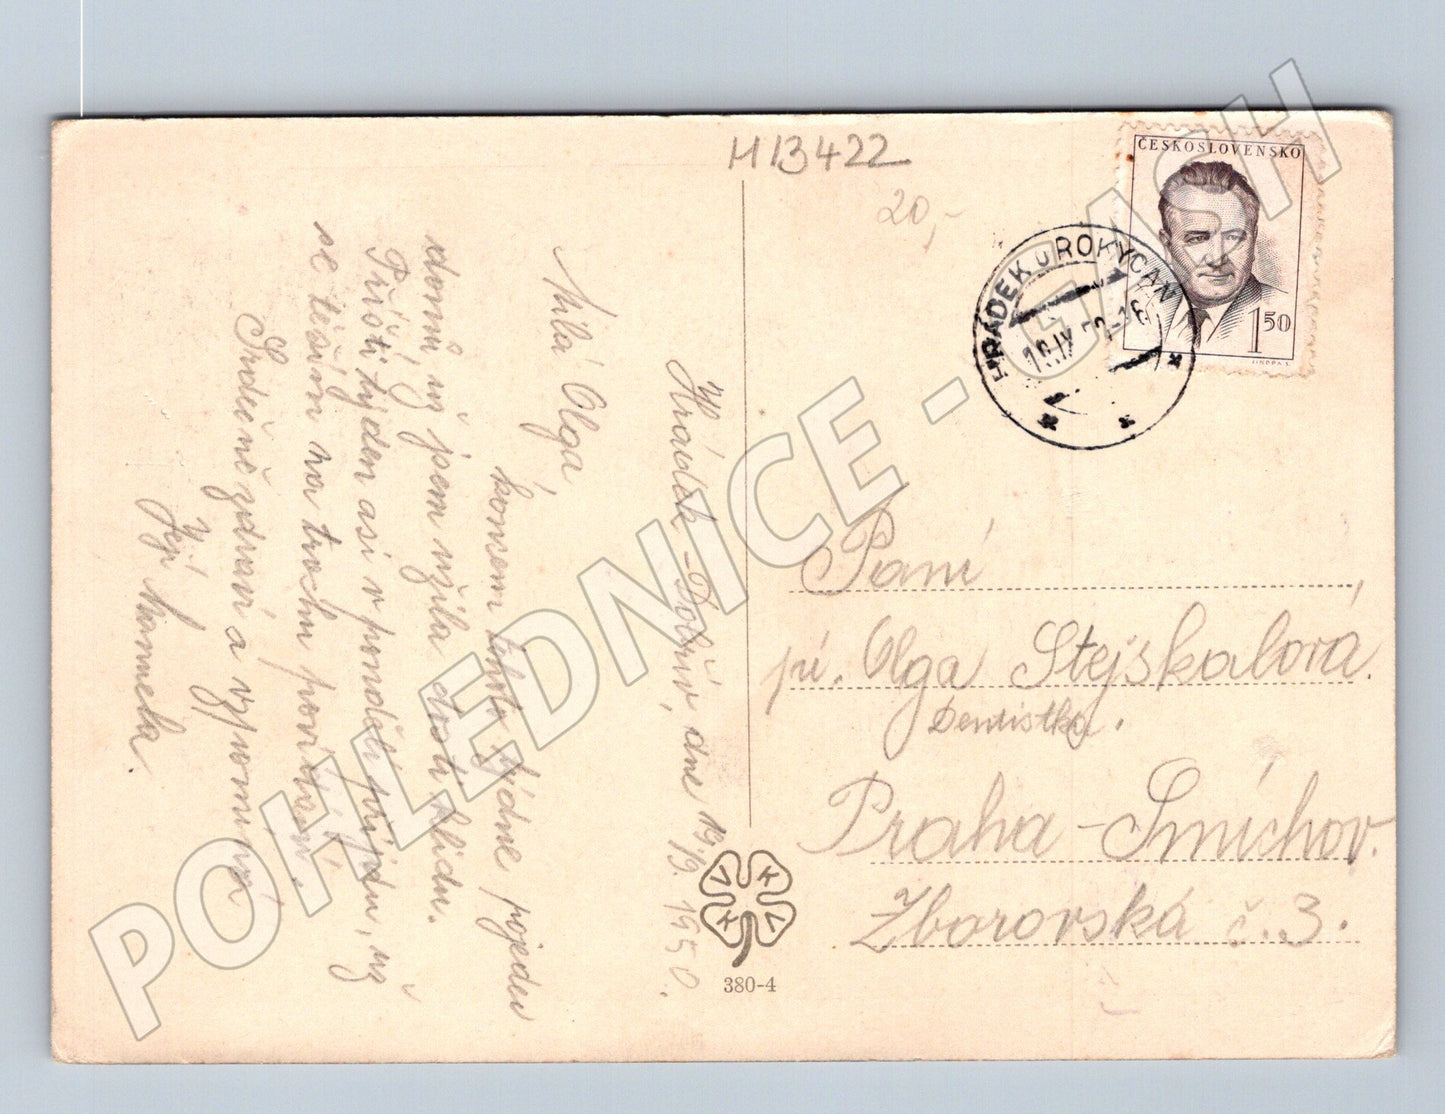 H13422
20,-
ČESKOSLOVENSKO
1 50
HRÁDEK U ROKYCAN
19.IX
Hrádek - Dobřív, dne 19/9. 1950.
Milá Olga,
koncem tohoto týdne pojedeu
domů, už jsem užila dosti klidu.
Příští týden asi v pondělí přijdu, už
se těším na trochu povídání.
Srdečně zdraví a vzpomíná
Její
Pani
pí. Olga Stejskalová.
Dentistka.
Praha - Smíchov.
Zborovská č. 3.
V K V K
380-4
POHLEDNICE - GASH